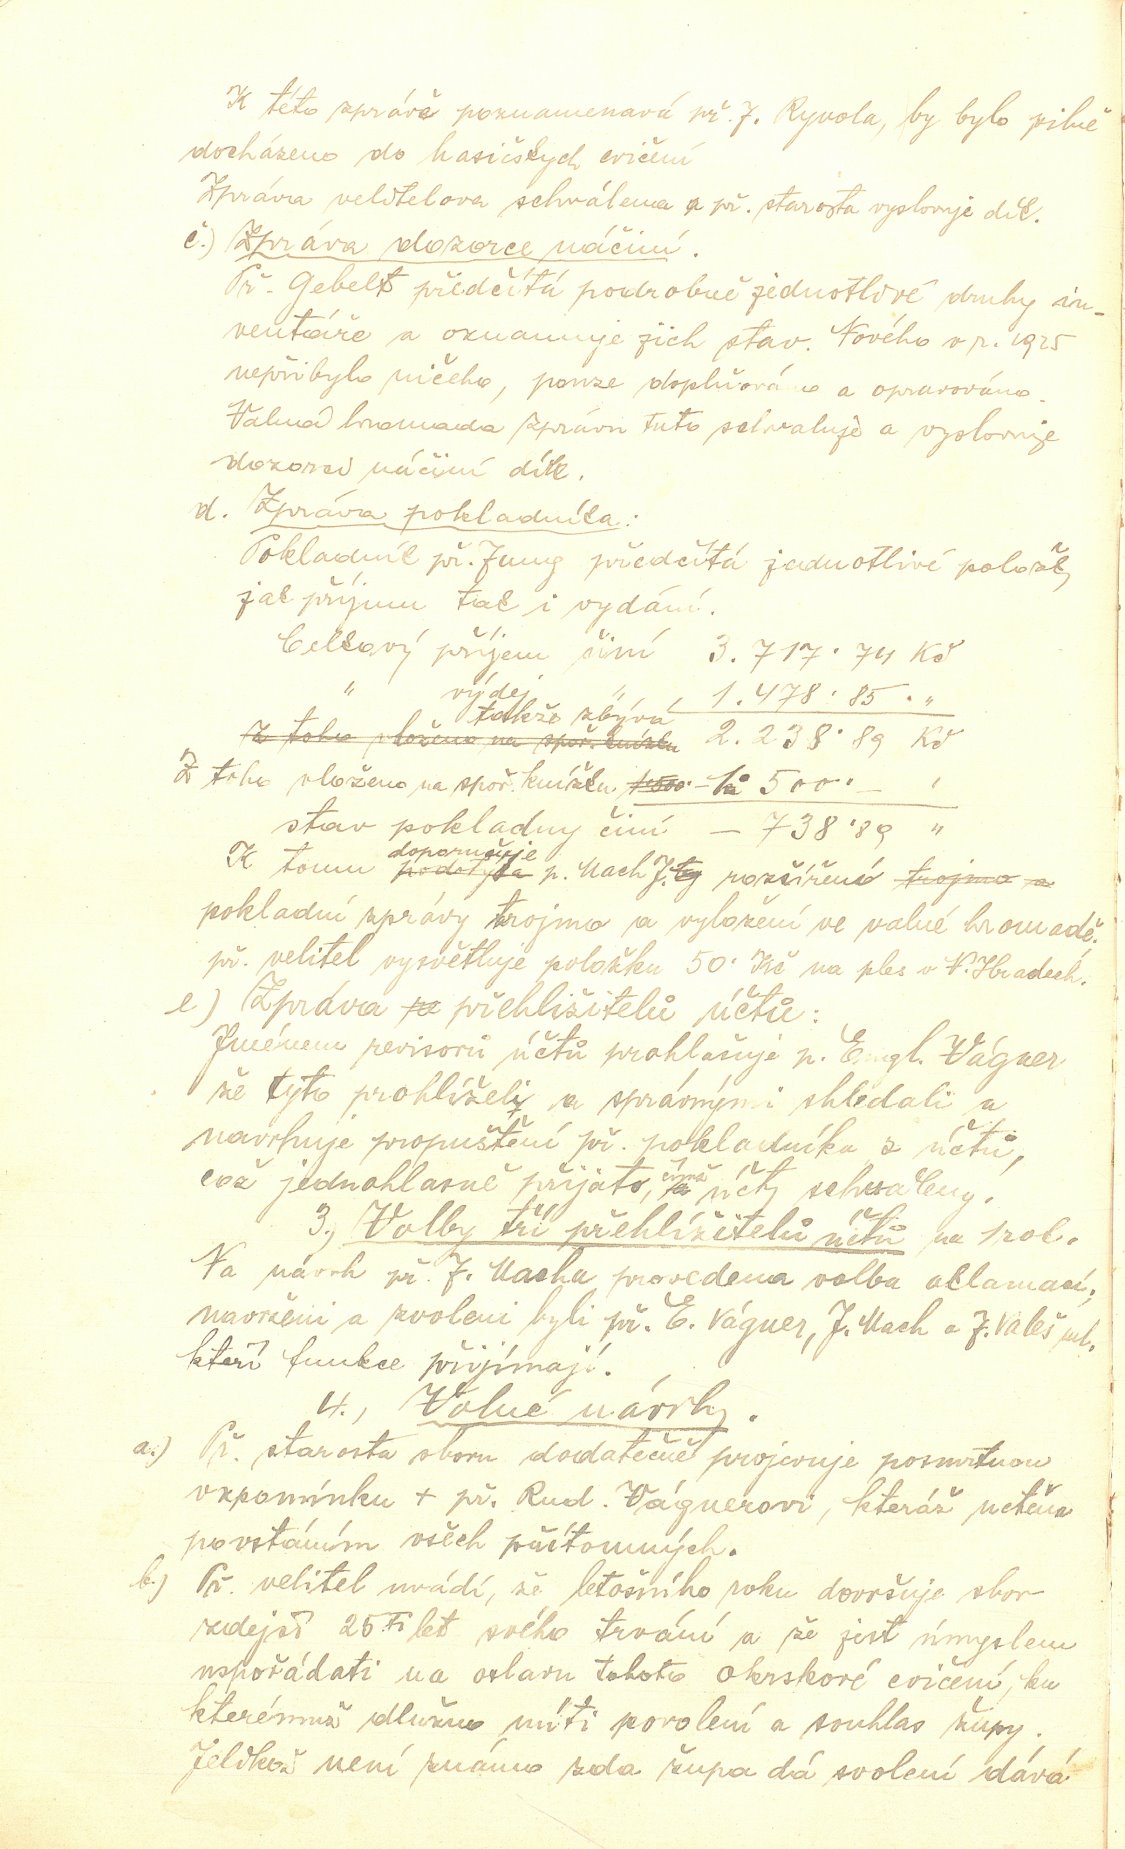 K této zprávě poznamenavá př. J. Ryvola, by bylo pilně
docházeno do hasičských cvičení
Zpráva velitelova schválena a př. starosta vyslovuje dík.
c.) Zpráva dozorce náčiní.
Př. Gebelt předčítá podrobně jednotlivé druhy in-
ventáře a oznamuje jich stav. Nového v r. 1925
nepřibylo ničeho, pouze doplňováno a opravováno.
Valná hromada zprávu tuto schvaluje a vyslovuje
dozorci náčiní dík.
d. Zpráva pokladníka:
Pokladník př. Jung předčítá jednotlivé položky
jak příjmu tak i vydání.
Celkový příjem činí 3.717·74 Kč
" výdej " 1.478·85 · "
takže zbývá
Z toho vloženo na spoř. knížku 2.238·89 Kč
Z toho vloženo na spoř. knížku 1500·– 1500·– "
stav pokladny činí – 738·89 "
doporučuje
K tomu podotýká p. Mach J. rozšíření trojmo a
pokladní zprávy trojmo a vyložení ve valné hromadě.
př. velitel vysvětluje položku 50· Kč na ples v N. Hradech.
e) Zprava přehližitelů účtů:
Jménem revisorů účtů prohlašuje p. Engl. Vágner
že tyto prohlíželi a správnými shledali a
navrhuje propuštění př. pokladníka z účtů,
což jednohlasně přijato, čímž účty schváleny.
3., Volby tří přehlížitelů účtů na 1 rok.
Na návrh př. J. Macha provedena volba aklamací,
navrženi a zvoleni byli př. E. Vágner, J. Mach a J. Valeš ml.
kteří funkce přijímají.
4., Volné návrhy.
a.) Př. starosta sboru dodatečně projevuje posmrtnou
vzpomínku + př. Rud. Vágnerovi, kteráž uctěna
povstáním všech přítomných.
b.) Př. velitel uvádí, že letošního roku dovršuje sbor
zdejší 25ti let svého trvání a že jest úmyslem
uspořádati na oslavu tohoto okrskové cvičení, ku
kterémuž dlužno míti povolení a souhlas župy.
Jelikož není známo zda župa dá svolení dává